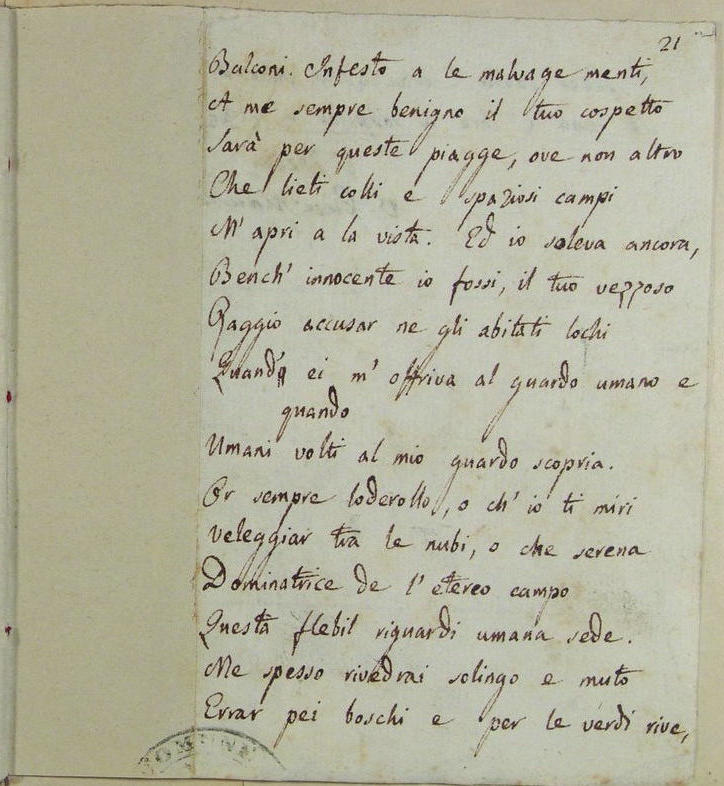 21
Balconi. Infesto a le malvage menti,
A me sempre benigno il tuo cospetto
Sarà per queste piagge, ove non altro
Che lieti colli e spaziosi campi
M' apri a la vista. Ed io soleva ancora,
Bench' innocente io fossi, il tuo vezzoso
Raggio accusar ne gli abitati lochi
Quand' ei m' offriva al guardo umano e
quando
Umani volti al mio guardo scopria.
Or sempre loderollo, o ch' io ti miri
Veleggiar tra le nubi, o che serena
Dominatrice de l' etereo campo
Questa flebil riguardi umana sede.
Me spesso rivedrai solingo e muto
Errar pei boschi e per le verdi rive,
COMUNE